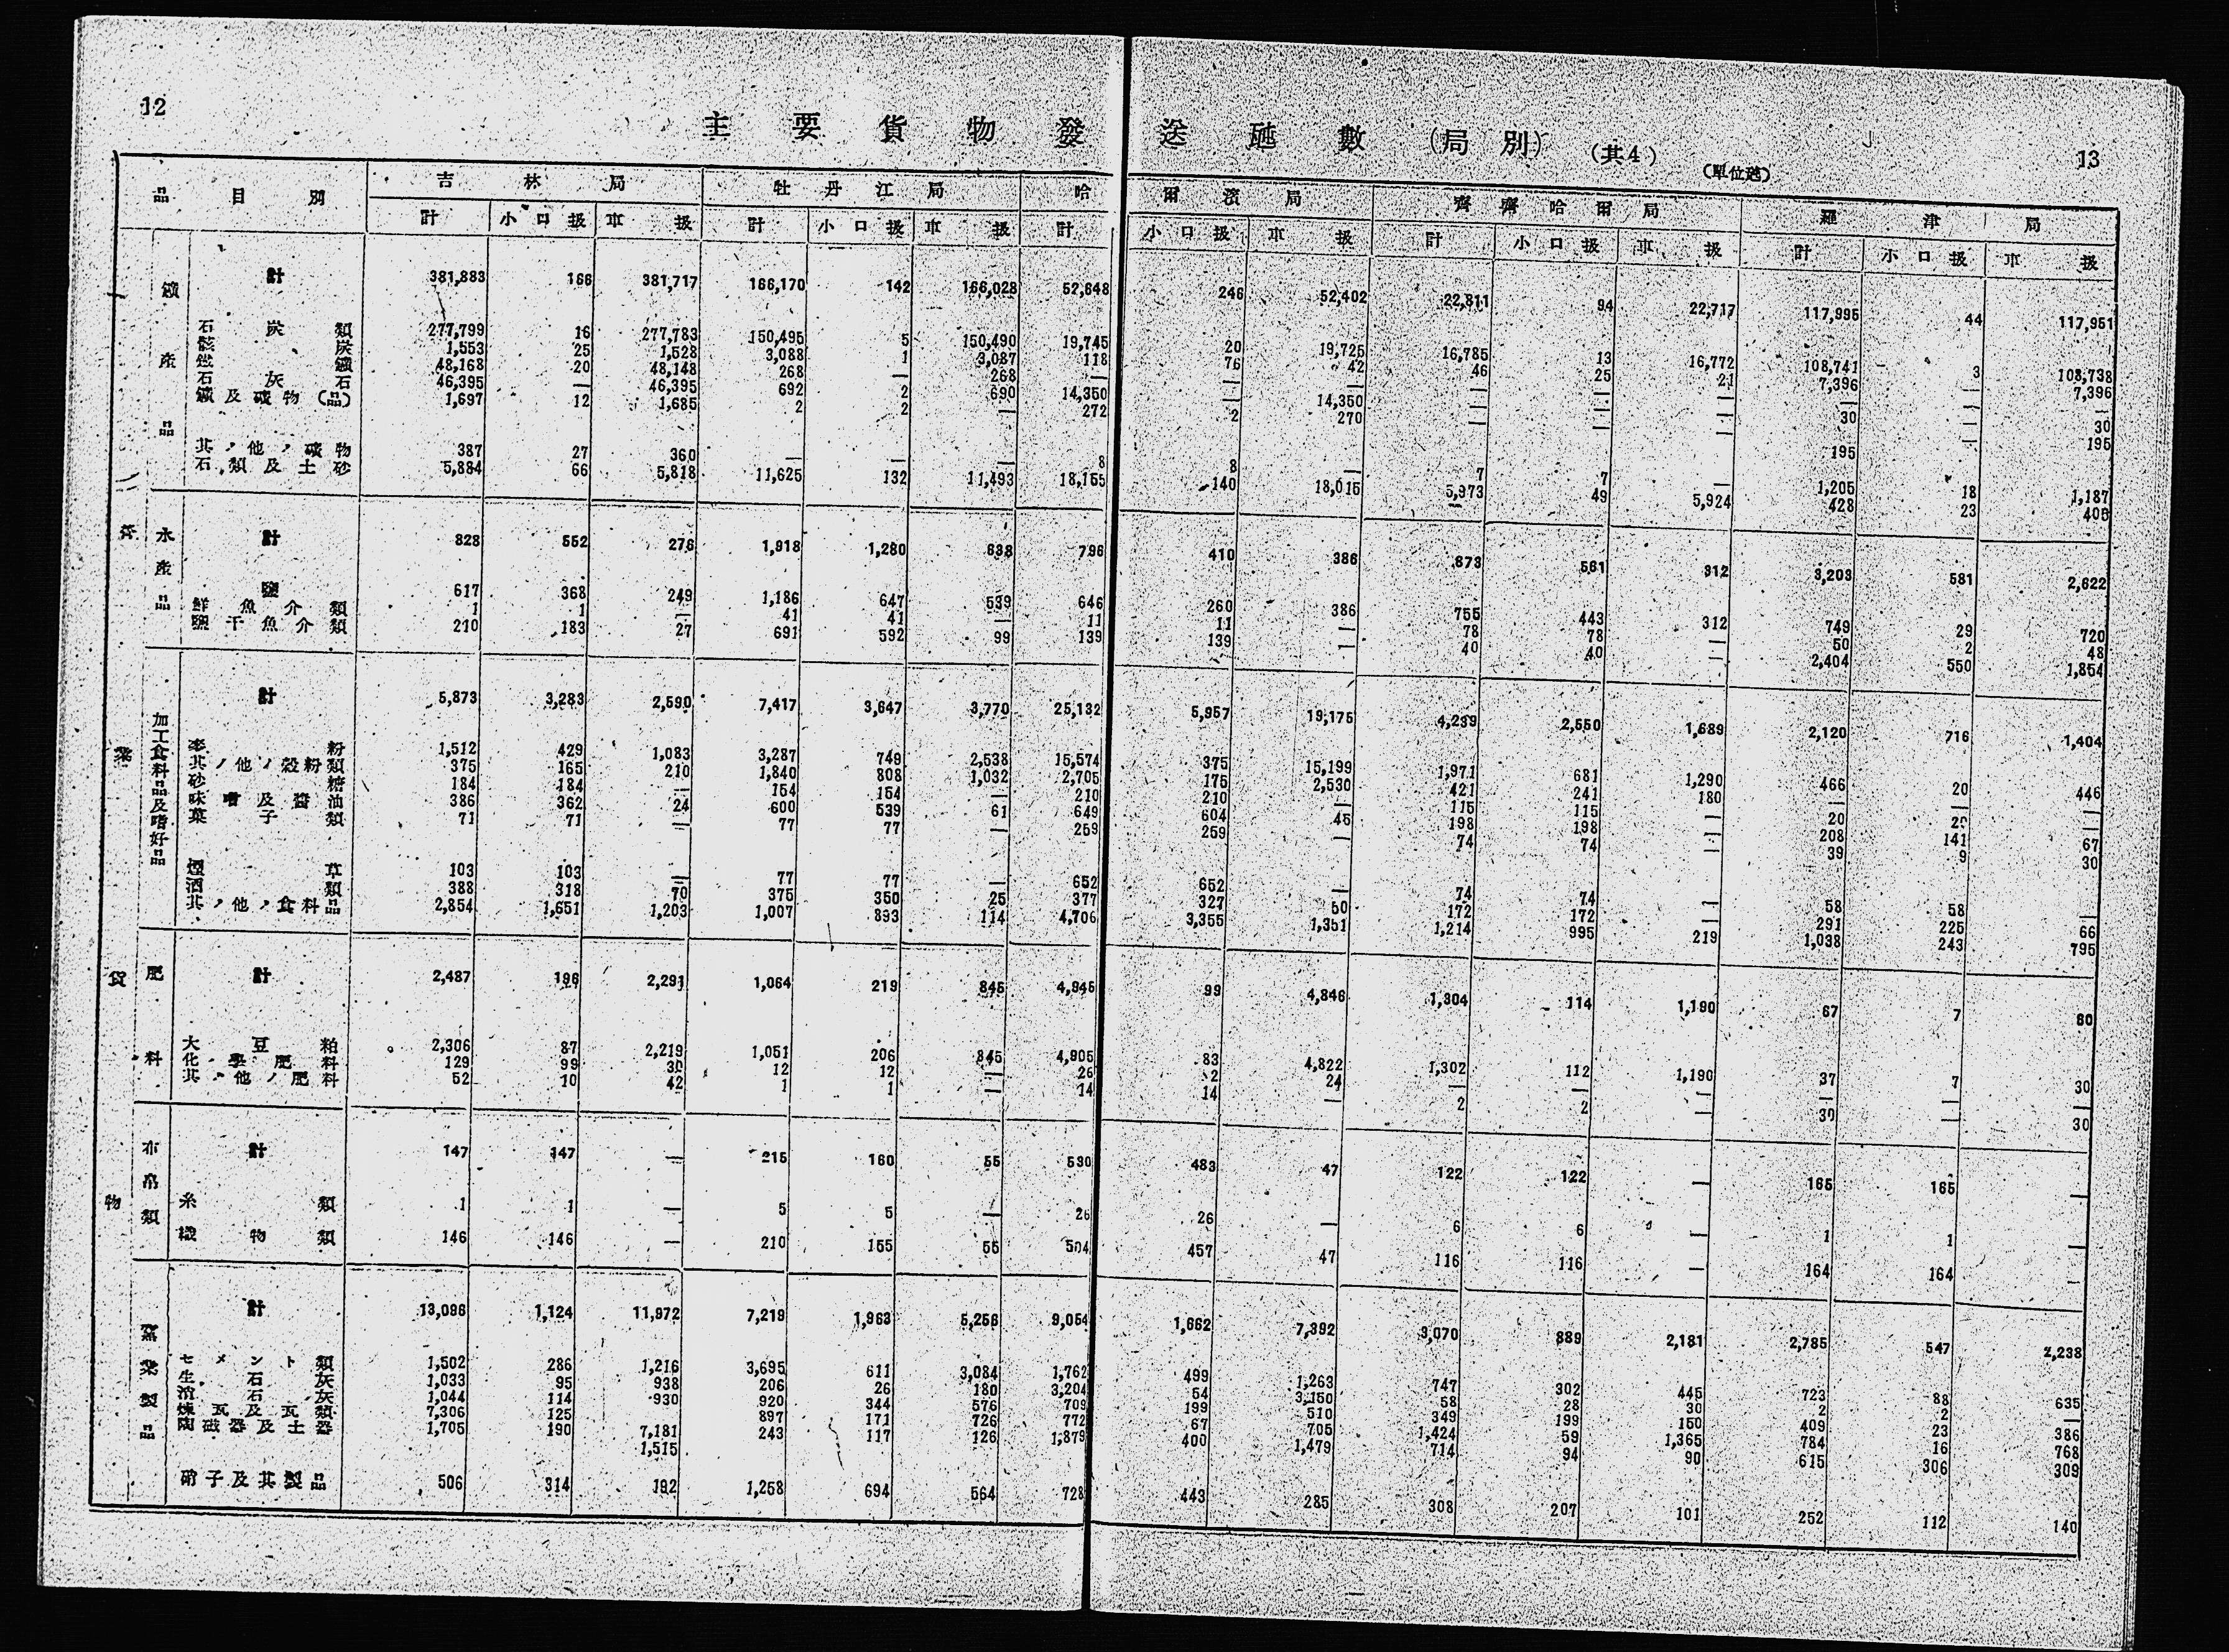 12
主要貨物發送瓲數(局別) (其4)
(單位瓲)
13
品目別 吉林局 牡丹江局 哈爾濱局 齊齊哈爾局 羅津局
計 小口扱 車扱 計 小口扱 車扱 計 小口扱 車扱 計 小口扱 車扱 計 小口扱 車扱
營業貨物
鑛產品
計 381,883 166 381,717 166,170 142 166,028 52,648 246 52,402 22,811 94 22,717 117,995 44 117,951
石炭類 277,799 16 277,783 150,495 5 150,490 19,745 20 19,725 16,785 13 16,772 108,741 3 108,738
骸炭 1,553 25 1,528 3,088 1 3,087 118 76 42 46 25 21 7,396 — 7,396
鐵鑛 48,168 20 48,148 268 — 268 — — — — — — — — —
石灰石 46,395 — 46,395 692 2 690 14,350 — 14,350 — — — 30 — 30
鑛及礦物(品) 1,697 12 1,685 2 2 — 272 2 270 — — — 195 — 195
其ノ他ノ礦物 387 27 360 — — — 8 8 — 7 7 — 1,205 18 1,187
石類及土砂 5,884 66 5,818 11,625 132 11,493 18,155 140 18,015 5,973 49 5,924 428 23 405
水產品
計 828 552 276 1,918 1,280 638 796 410 386 873 561 312 3,203 581 2,622
鹽 617 368 249 1,186 647 539 646 260 386 755 443 312 749 29 720
鮮魚介類 1 1 — 41 41 — 11 11 — 78 78 — 50 2 48
鹽干魚介類 210 183 27 691 592 99 139 139 — 40 40 — 2,404 550 1,854
加工食料品及嗜好品
計 5,873 3,283 2,590 7,417 3,647 3,770 25,132 5,957 19,175 4,239 2,550 1,689 2,120 716 1,404
麥粉 1,512 429 1,083 3,287 749 2,538 15,574 375 15,199 1,971 681 1,290 466 20 446
其ノ他ノ穀粉類 375 165 210 1,840 808 1,032 2,705 175 2,530 421 241 180 — — —
砂糖 184 184 — 154 154 — 210 210 — 115 115 — 20 20 —
味噌及醬油 386 362 24 600 539 61 649 604 45 198 198 — 208 141 67
菓子類 71 71 — 77 77 — 259 259 — 74 74 — 39 9 30
煙草 103 103 — 77 77 — 652 652 — 74 74 — 58 58 —
酒類 388 318 70 375 350 25 377 327 50 172 172 — 291 225 66
其ノ他ノ食料品 2,854 1,651 1,203 1,007 893 114 4,706 3,355 1,351 1,214 995 219 1,038 243 795
肥料
計 2,487 196 2,291 1,064 219 845 4,945 99 4,846 1,304 114 1,190 67 7 60
大豆粕 2,306 87 2,219 1,051 206 845 4,905 83 4,822 1,302 112 1,190 37 7 30
化學肥料 129 99 30 12 12 — 26 2 24 — — — — — —
其ノ他ノ肥料 52 10 42 1 1 — 14 14 — 2 2 — 30 — 30
布帛類
計 147 147 — 215 160 55 530 483 47 122 122 — 165 165 —
糸類 1 1 — 5 5 — 26 26 — 6 6 — 1 1 —
織物類 146 146 — 210 155 55 504 457 47 116 116 — 164 164 —
窯業製品
計 13,096 1,124 11,972 7,219 1,963 5,256 9,054 1,662 7,392 3,070 889 2,181 2,785 547 2,238
セメント類 1,502 286 1,216 3,695 611 3,084 1,762 499 1,263 747 302 445 723 88 635
生石灰 1,033 95 938 206 26 180 3,204 54 3,150 58 28 30 2 2 —
消石灰 1,044 114 930 920 344 576 709 199 510 349 199 150 409 23 386
煉瓦及瓦類 7,306 125 7,181 897 171 726 772 67 705 1,424 59 1,365 784 16 768
陶磁器及土器 1,705 190 1,515 243 117 126 1,879 400 1,479 714 94 90 615 306 309
硝子及其製品 506 314 192 1,258 694 564 728 443 285 308 207 101 252 112 140